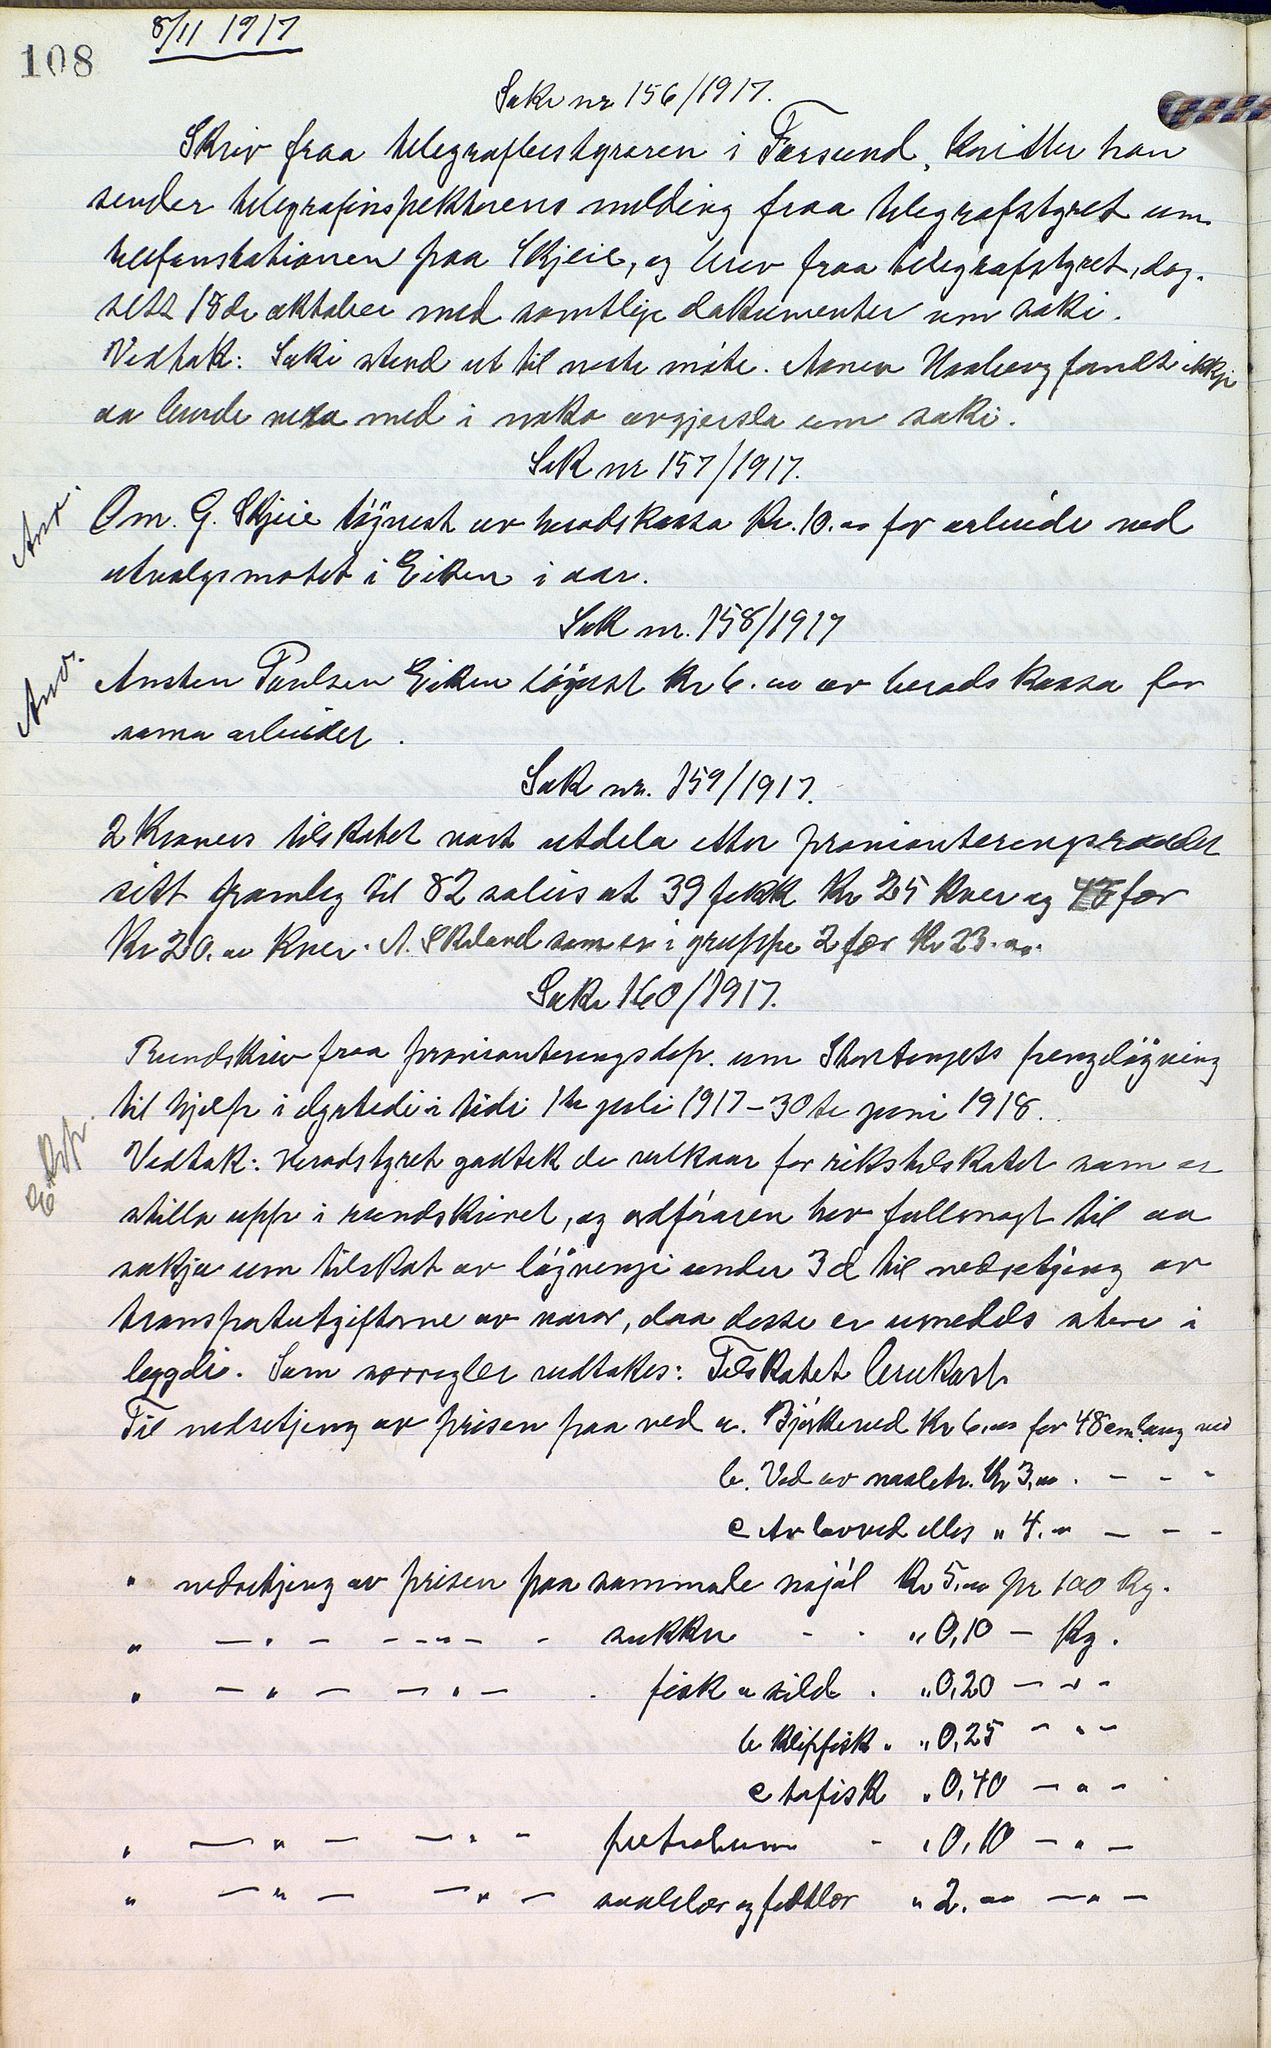 108
8/11 1917
Sak nr 156/1917.
Skriv fraa telegrafbestyraren i Farsund, kvitter han
sender telegrafinspektørens melding fraa telegrafstyret um
telefonstationen paa Skjeie, og brev fraa telegrafstyret, dag-
sett 18de oktober med samtlije dokumenter um saki.
Vedtak: Saki stend ut til neste møte. Asmen Haaberg fandt ikkje
aa burde vera med i noko avgjersla um saki.
Sak nr 157/1917.
Anv.
Om. G. Skjeie løyvest av heradskassa kr. 10.00 for arbeide ved
utvalgsmøtet i Eiken i aar.
Sak nr. 158/1917
Anv.
Ansten Paulsen Eiken løyvest kr 6.00 av herads kassa for
sama arbeider.
Sak nr. 159/1917.
2 Kroners tilskotet vart utdela etter provianteringsraadet
sitt framleg til 82 soleis at 39 fekk kr 25 kver og 43 fær
kr 20.00 kver. A. Skeland som er i gruppe 2 fær kr 23.00.
Sak 160/1917.
Rundskriv fraa provianteringsdep. um Stortingets pengeløyving
til hjelp i dyrtedi i tidi 1te juli 1917 – 30te juni 1918.
Vedtak: Heradstyret godtek de vilkaar for rikstilskotet som er
stilla upp i rundskrivet, og ordføraren hev fullmagt til aa
søkja um tilskot av løyvingi under 3 d til nedsetjing av
transportutgifterne av varor, daa desse er umedels store i
bygdi. Som særregler vedtakes: Tilskotet brukast
Til nedsetjing av prisen paa ved a. Bjørkeved kr 6.00 for 48 cm lang ved
b. Ved av naaletr. kr 3.00 . – – -
c Av lauvved elles " 4.00 – – -
" nedsetjing av prisen paa sammale mjøl kr 5.00 pr 100 kg.
" – " – – " – - sukker - - " 0,10 – kg.
" – " – – " – . fisk a sild . " 0,20 – " -
b klipfisk . " 0,25 – " –
c tøfisk " 0,40 – " -
" – " – – " - petroleum - " 0,10 – " –
" – " – – " – saalelær og fedtlær " 2.00 – " –